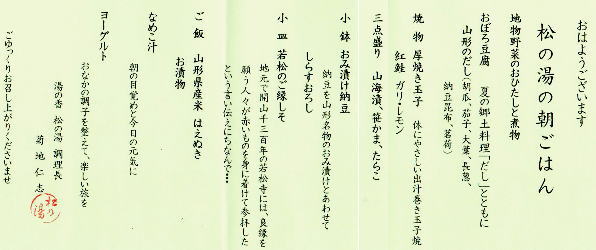 おはようございます
松の湯の朝ごはん
地物野菜のおひたしと煮物
おぼろ豆腐 夏の郷土料理「だし」とともに
山形のだし(胡瓜、茄子、大葉、長葱、
納豆昆布、茗荷)
焼物 厚焼き玉子 体にやさしい出汁巻き玉子焼
紅鮭 ガリ・レモン
三点盛り 山海漬、笹かま、たらこ
小鉢 おみ漬け納豆
納豆を山形名物のおみ漬けとあわせて
しらすおろし
小皿 若松のご縁しそ
地元で開山千三百年の若松寺には、良縁を
願う人々が赤いものを身に着けて参拝した
という言い伝えにちなんで…
ご飯 山形県産米 はえぬき
お漬物
なめこ汁
朝の目覚めと今日の元気に
ヨーグルト
おなかの調子を整えて、楽しい旅を
湯の香 松の湯 調理長
菊地 仁志
松の湯
ごゆっくりお召し上がりくださいませ